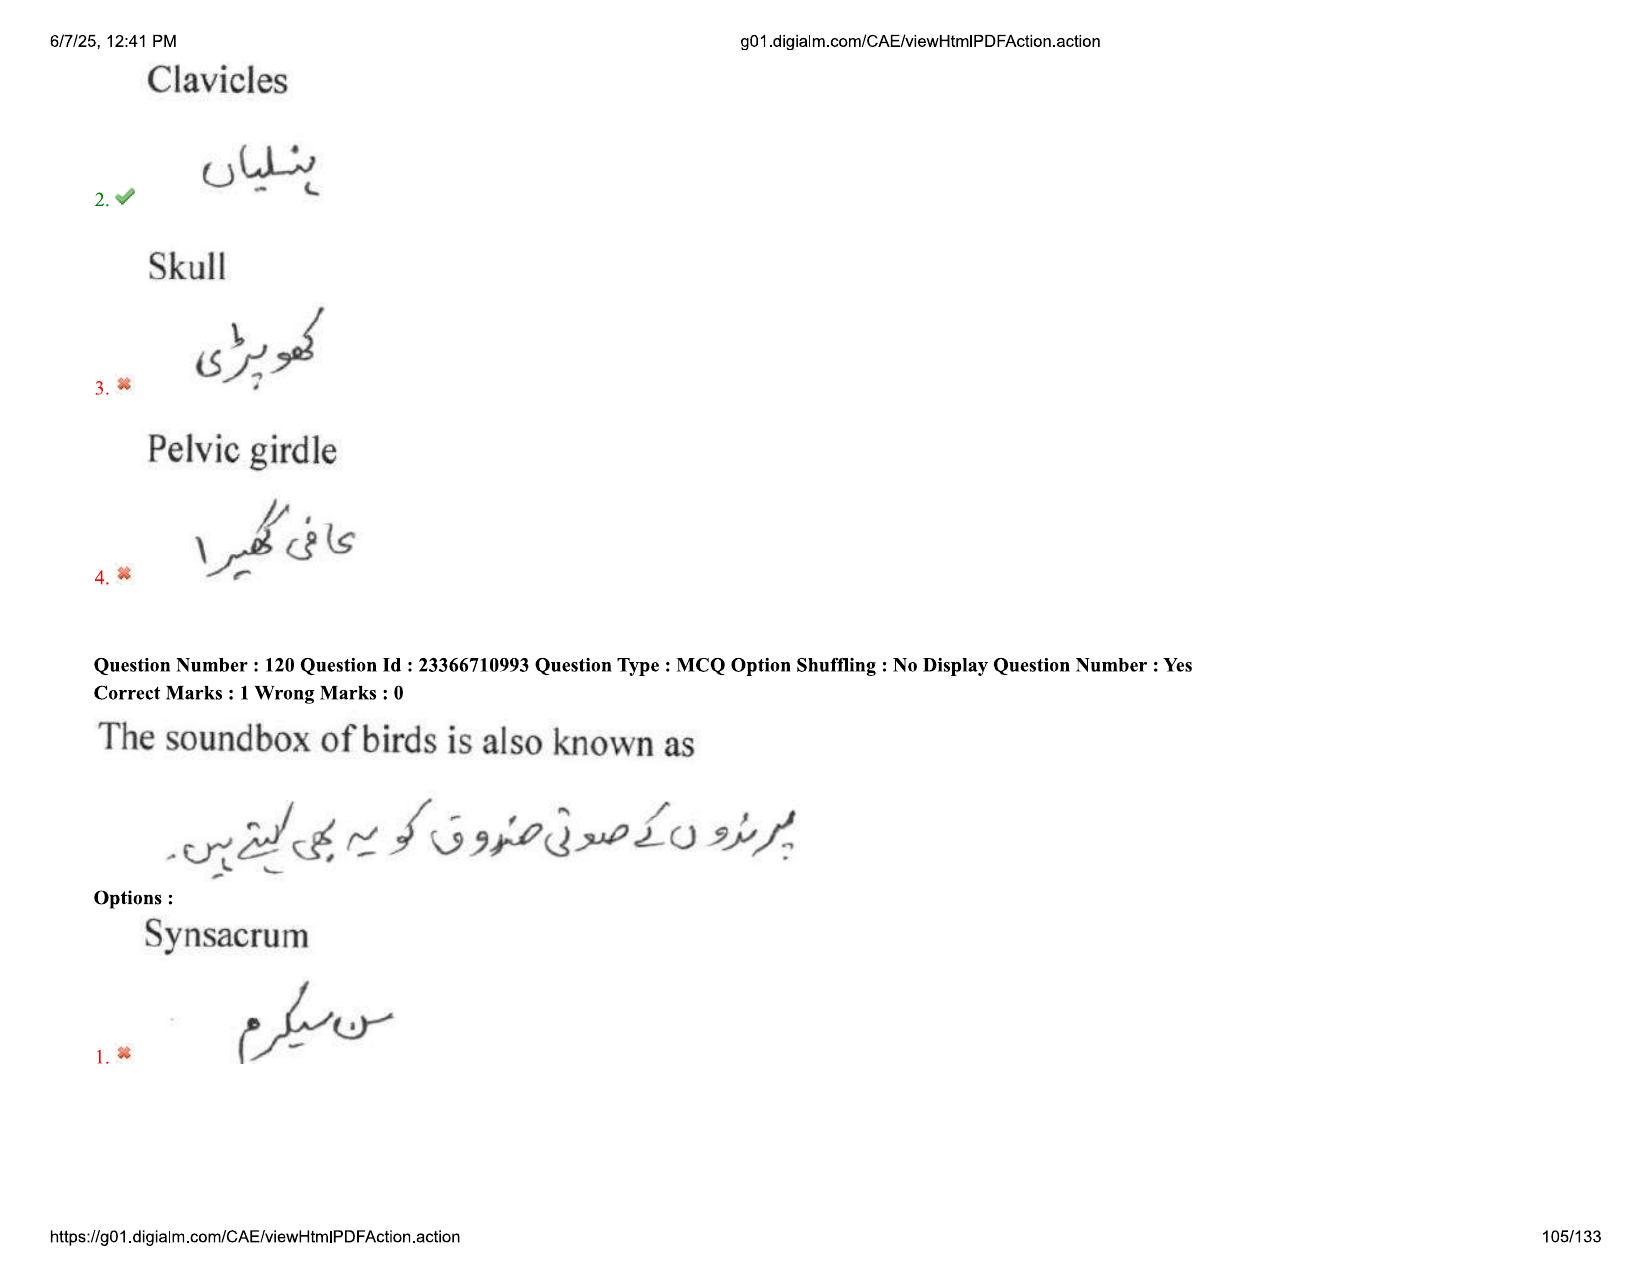 6/7/25, 12:41 PM
g01.digialm.com/CAE/viewHtmlPDFAction.action
Clavicles
ہنسلیاں
2.
Skull
کھوپڑی
3.
Pelvic girdle
عافی گھیرا
4.
Question Number : 120 Question Id : 23366710993 Question Type : MCQ Option Shuffling : No Display Question Number : Yes
Correct Marks : 1 Wrong Marks : 0
The soundbox of birds is also known as
پرندوں کے صوتی صندوق کو یہ بھی کہتے ہیں۔
Options :
Synsacrum
سن سیکرم
1.
https://g01.digialm.com/CAE/viewHtmlPDFAction.action
105/133